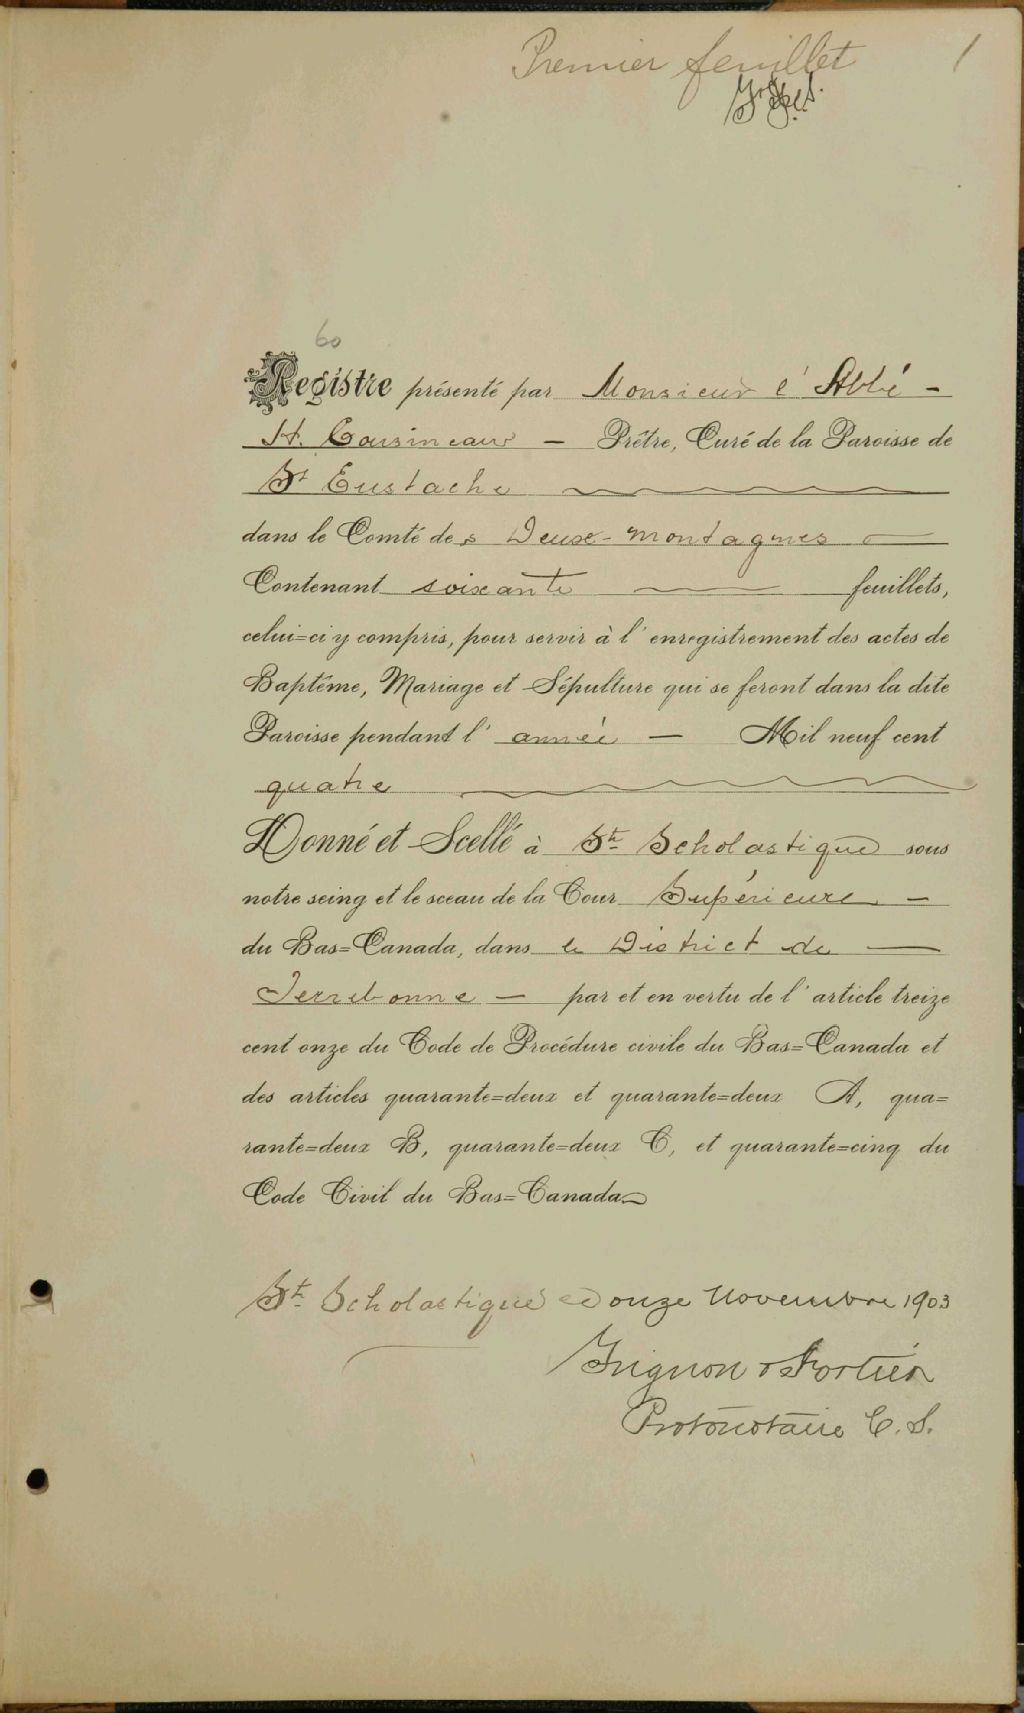 Premier feuillet 1
60
Registre présenté par Monsieur l'Abbé -
H. Cousineau - Prêtre, Curé de la Paroisse de
St Eustache
dans le Comté des Deux-montagnes
Contenant soixante feuillets,
celui=ci y compris, pour servir à l'enregistrement des actes de
Baptême, Mariage et Sépulture qui se feront dans la dite
Paroisse pendant l'année - Mil neuf cent
quatre
Donné et Scellé à Ste Scholastique sous
notre seing et le sceau de la Cour Supérieure -
du Bas=Canada, dans le District de
Terrebonne - par et en vertu de l'article treize
cent onze du Code de Procédure civile du Bas=Canada et
des articles quarante=deux et quarante=deux A, qua=
rante=deux B, quarante=deux C, et quarante=cinq du
Code Civil du Bas=Canada
Ste Scholastique onze Novembre 1903
Grignon & Fortier
Protonotaire C. S.